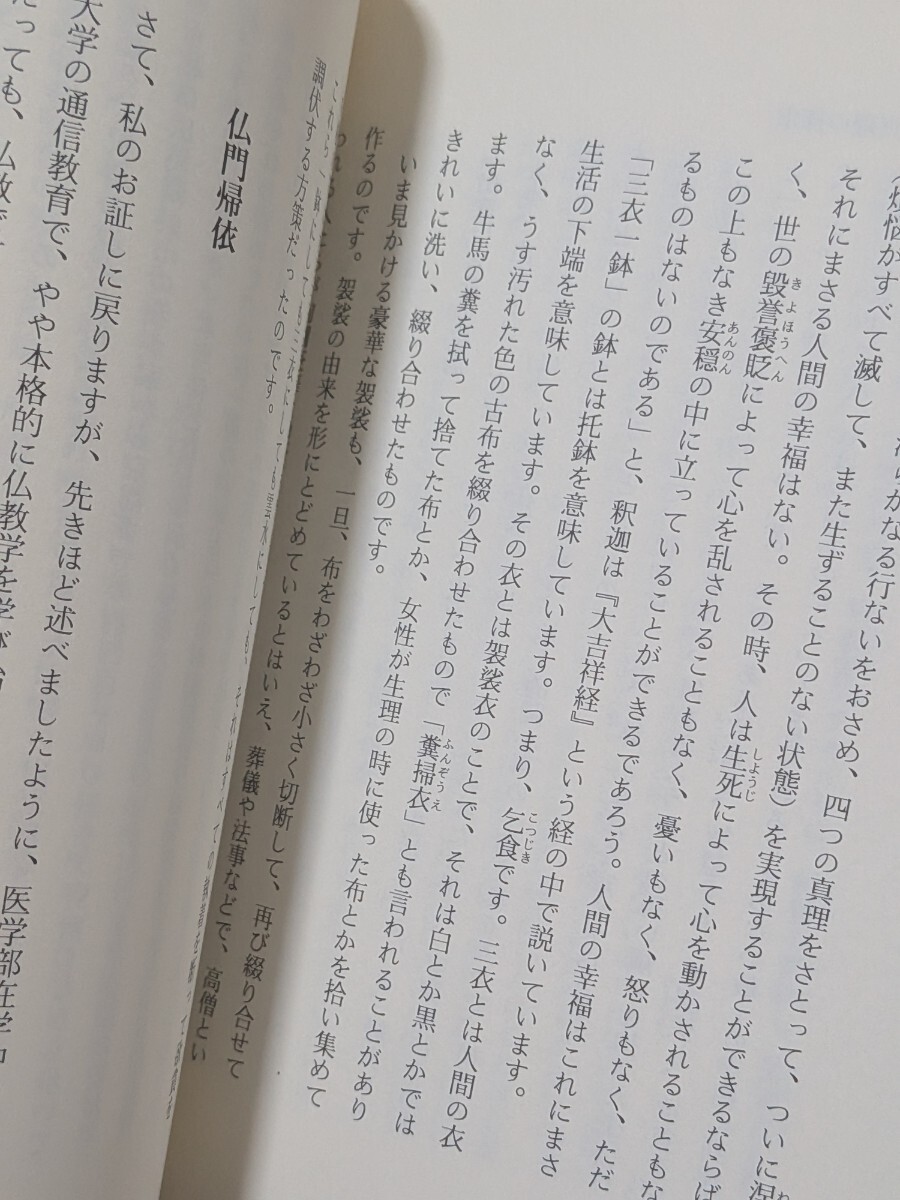 らかなる行ないをおさめ、四つの真理をさとって、ついに涅
(煩悩がすべて滅して、また生ずることのない状態)を実現することができるならば
それにまさる人間の幸福はない。その時、人は生死によって心を動かされることもな
しようじ
く、世の毀誉褒貶によって心を乱されることもなく、憂いもなく、怒りもなく、ただ
きよほうへん
この上もなき安穏の中に立っていることができるであろう。人間の幸福はこれにまさ
あんのん
るものはないのである」と、釈迦は『大吉祥経』という経の中で説いています。
「三衣一鉢」の鉢とは托鉢を意味しています。つまり、乞食です。三衣とは人間の衣
こつじき
生活の下端を意味しています。その衣とは袈裟衣のことで、それは白とか黒とかでは
なく、うす汚れた色の古布を綴り合わせたもので「糞掃衣」とも言われることがあり
ふんぞうえ
ます。牛馬の糞を拭って捨てた布とか、女性が生理の時に使った布とかを拾い集めて
きれいに洗い、綴り合わせたものです。
いま見かける豪華な袈裟も、一旦、布をわざわざ小さく切断して、再び綴り合せて
作るのです。袈裟の由来を形にとどめているとはいえ、葬儀や法事などで、高僧とい
われる人
にしても三衣にしても雲水にしても、それはすべての
調伏する方策だったのです。
仏門帰依
さて、私のお証しに戻りますが、先きほど述べましたように、医学部在学中
大学の通信教育で、やや本格的に仏教学を学び
っても、仏教で